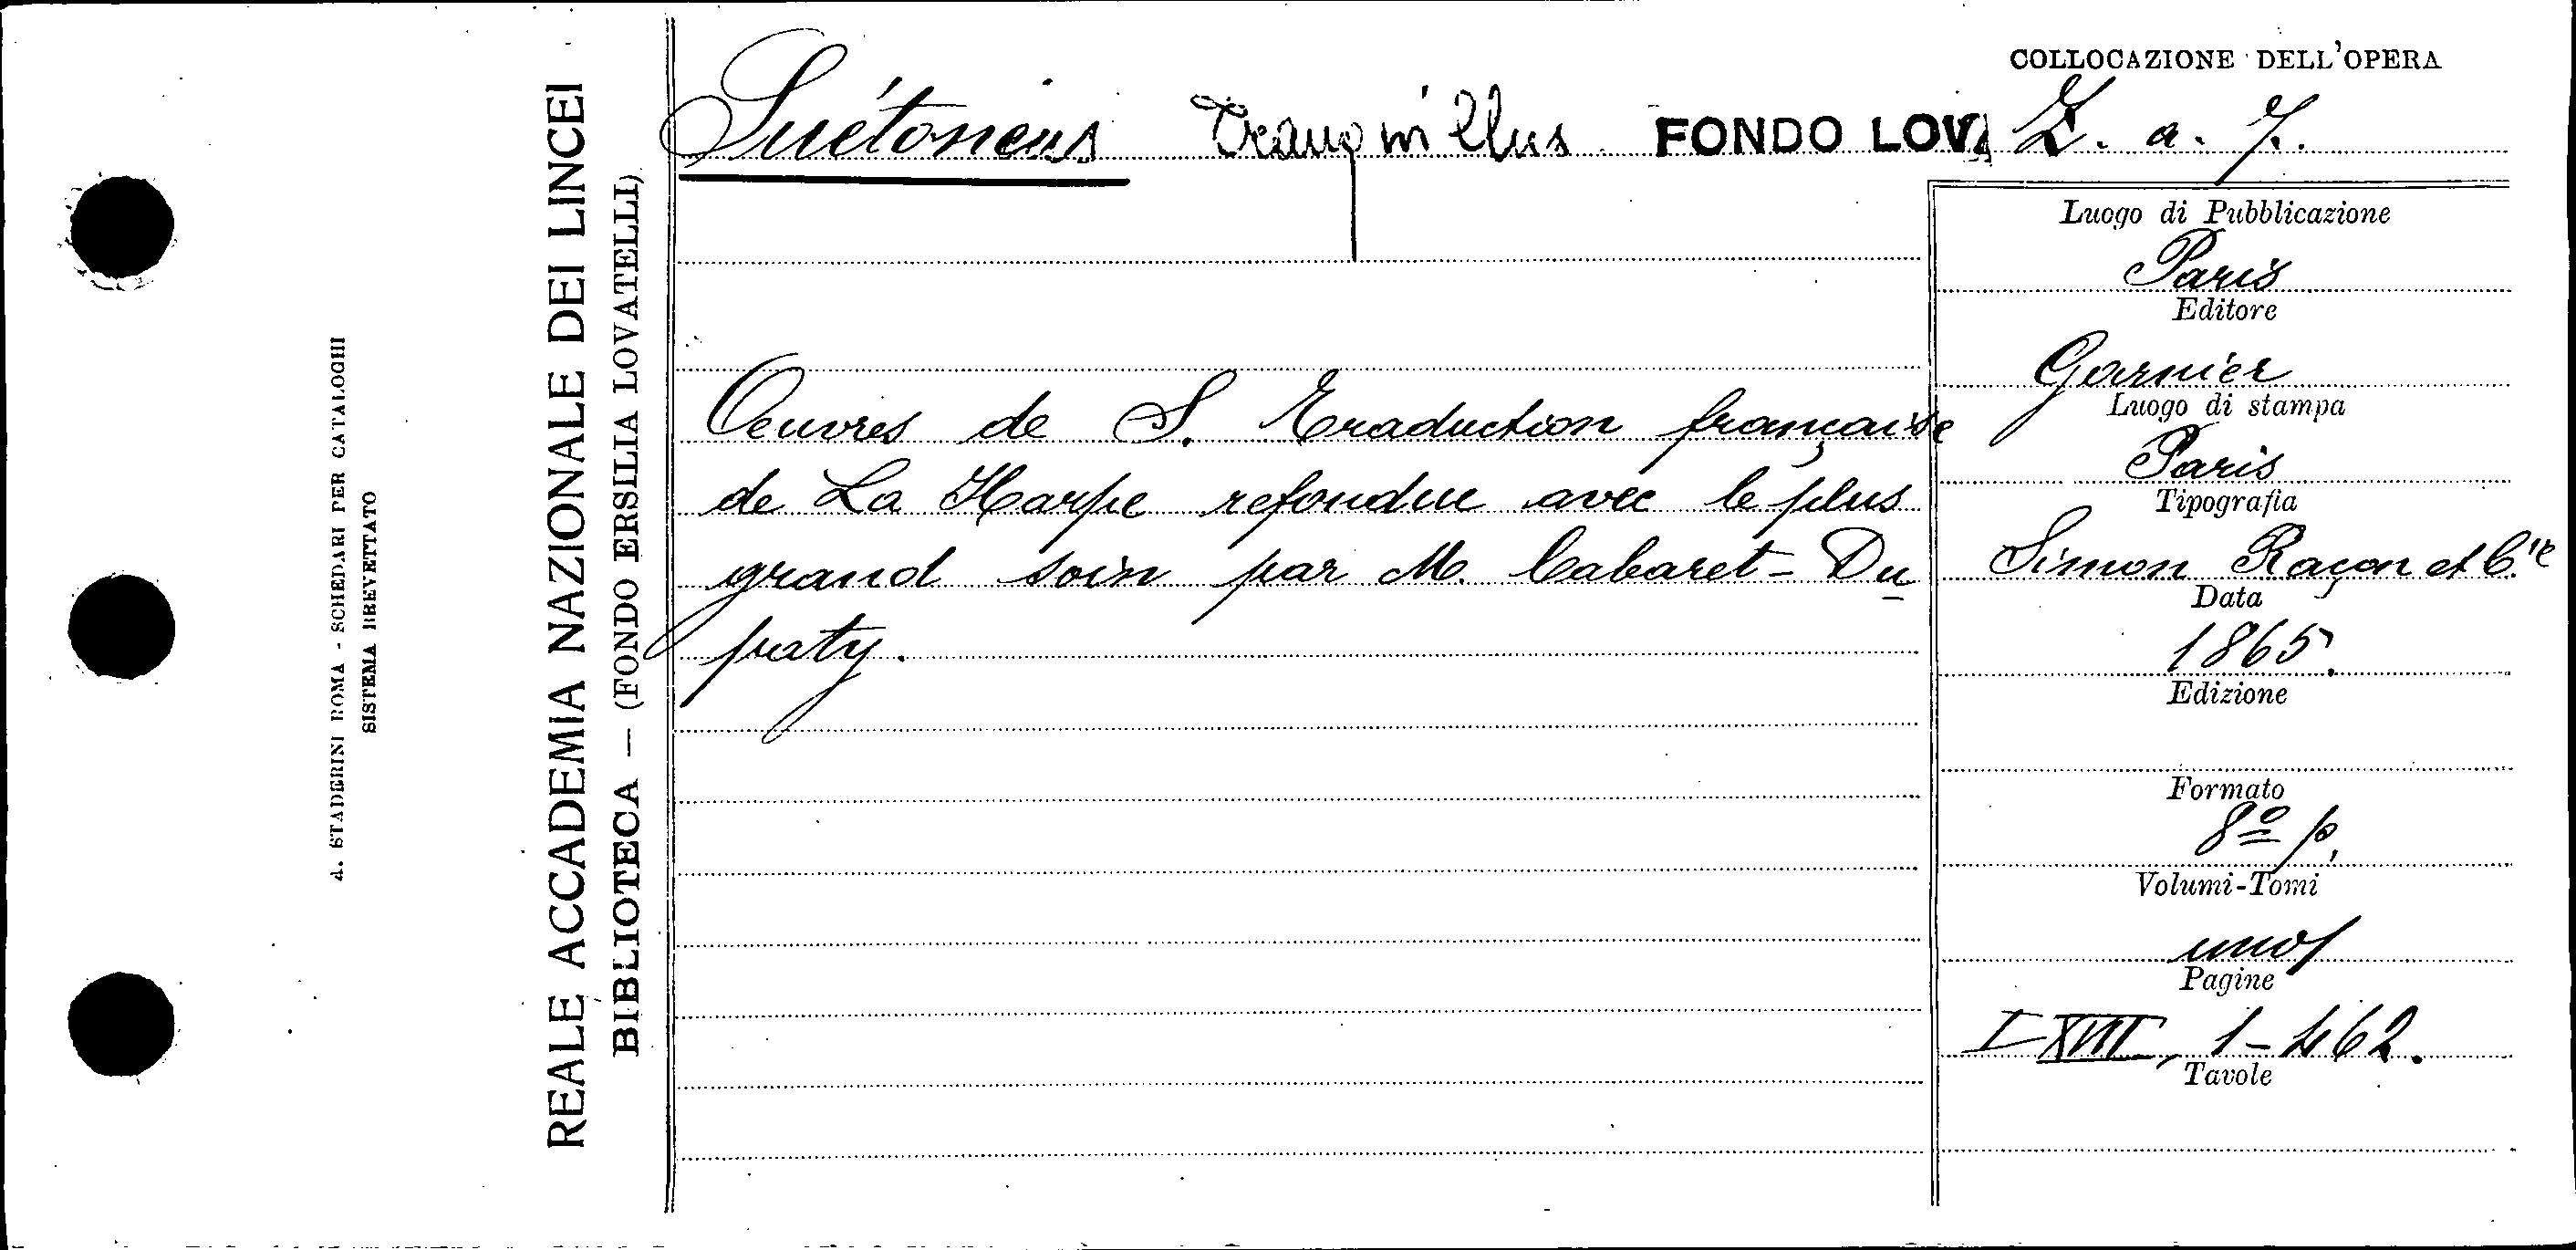 COLLOCAZIONE DELL'OPERA
Suétoneus Tranquillus FONDO LOV. Z. a. 7.
Oeuvres de S. Traduction française
de La Harpe refondue avec le plus
grand soin par M. Cabaret-Du
paty.
Luogo di Pubblicazione
Paris
Editore
Garnier
Luogo di stampa
Paris
Tipografia
Simon Raçon et C.ie
Data
1865.
Edizione
Formato
8º p.
Volumi-Tomi
uno
Pagine
I-XVIII, 1-462.
Tavole
REALE ACCADEMIA NAZIONALE DEI LINCEI
BIBLIOTECA — (FONDO ERSILIA LOVATELLI)
A. STADERINI ROMA - SCHEDARI PER CATALOGHI
SISTEMA BREVETTATO